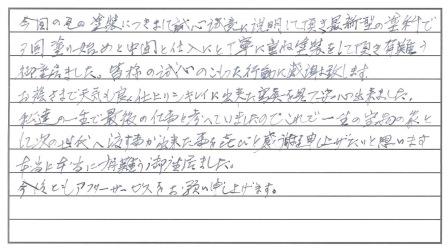 今回の屋の塗装につきまして誠心誠意に説明して頂き最新型の塗料で
3回塗の始めと中間と仕入にと丁寧に重ね塗装をして頂き有難う
御座居ました。皆様の誠心のこもった行動に感謝致します
お陰さまで天気も良く仕上りもキレイに出来た写真を見て安心出来ました。
私達の一生で最後の仕事と考へていましたのでこれで一生の宝物の家と
に次の世代へ渡す事が出来た事を喜びと感謝を申し上げたいと思います
本当に本当に有難う御座居ました。
今後ともアフターサービスをお願い申し上げます。